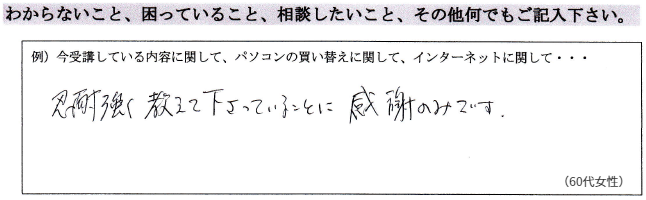 わからないこと、困っていること、相談したいこと、その他何でもご記入下さい。
例）今受講している内容に関して、パソコンの買い替えに関して、インターネットに関して・・・
忍耐強く教えて下さっていることに感謝のみです.
（60代女性）